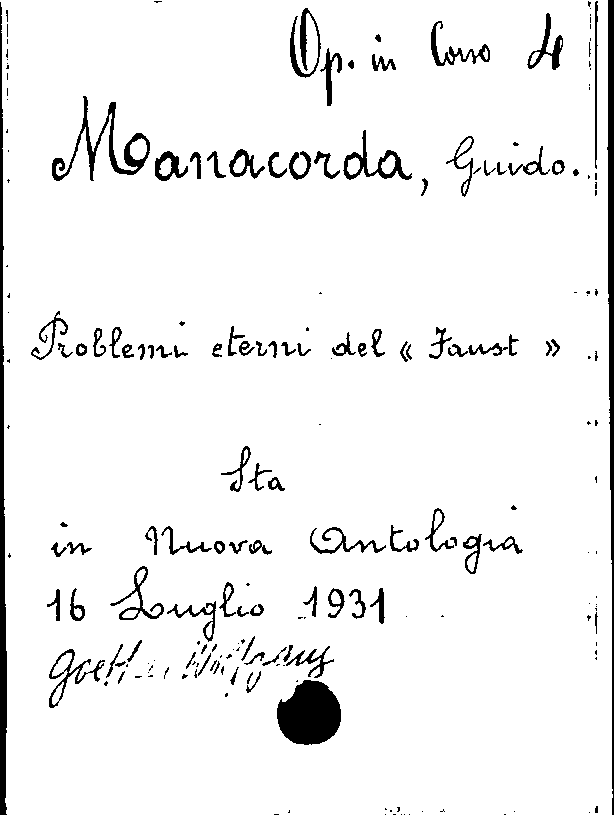 Op. in Corso 4
Manacorda, Guido.
Problemi eterni del « Faust »
Sta
in Nuova Antologia
16 Luglio 1931
Goethe Wolfgang